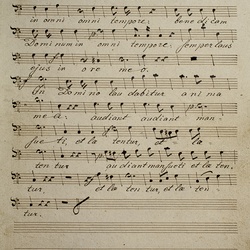 in omni tempore. benedicam
Dominum in omni tempore, semper laus
ejus in ore meo.
In Domino laudabitur anima
mea: audiant audiant man-
sueti, et lætentur, et læ-
tentur audiant mansueti et læten
tur, et lætentur, et læten
tur.